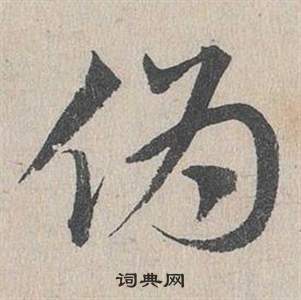 伪
词典网